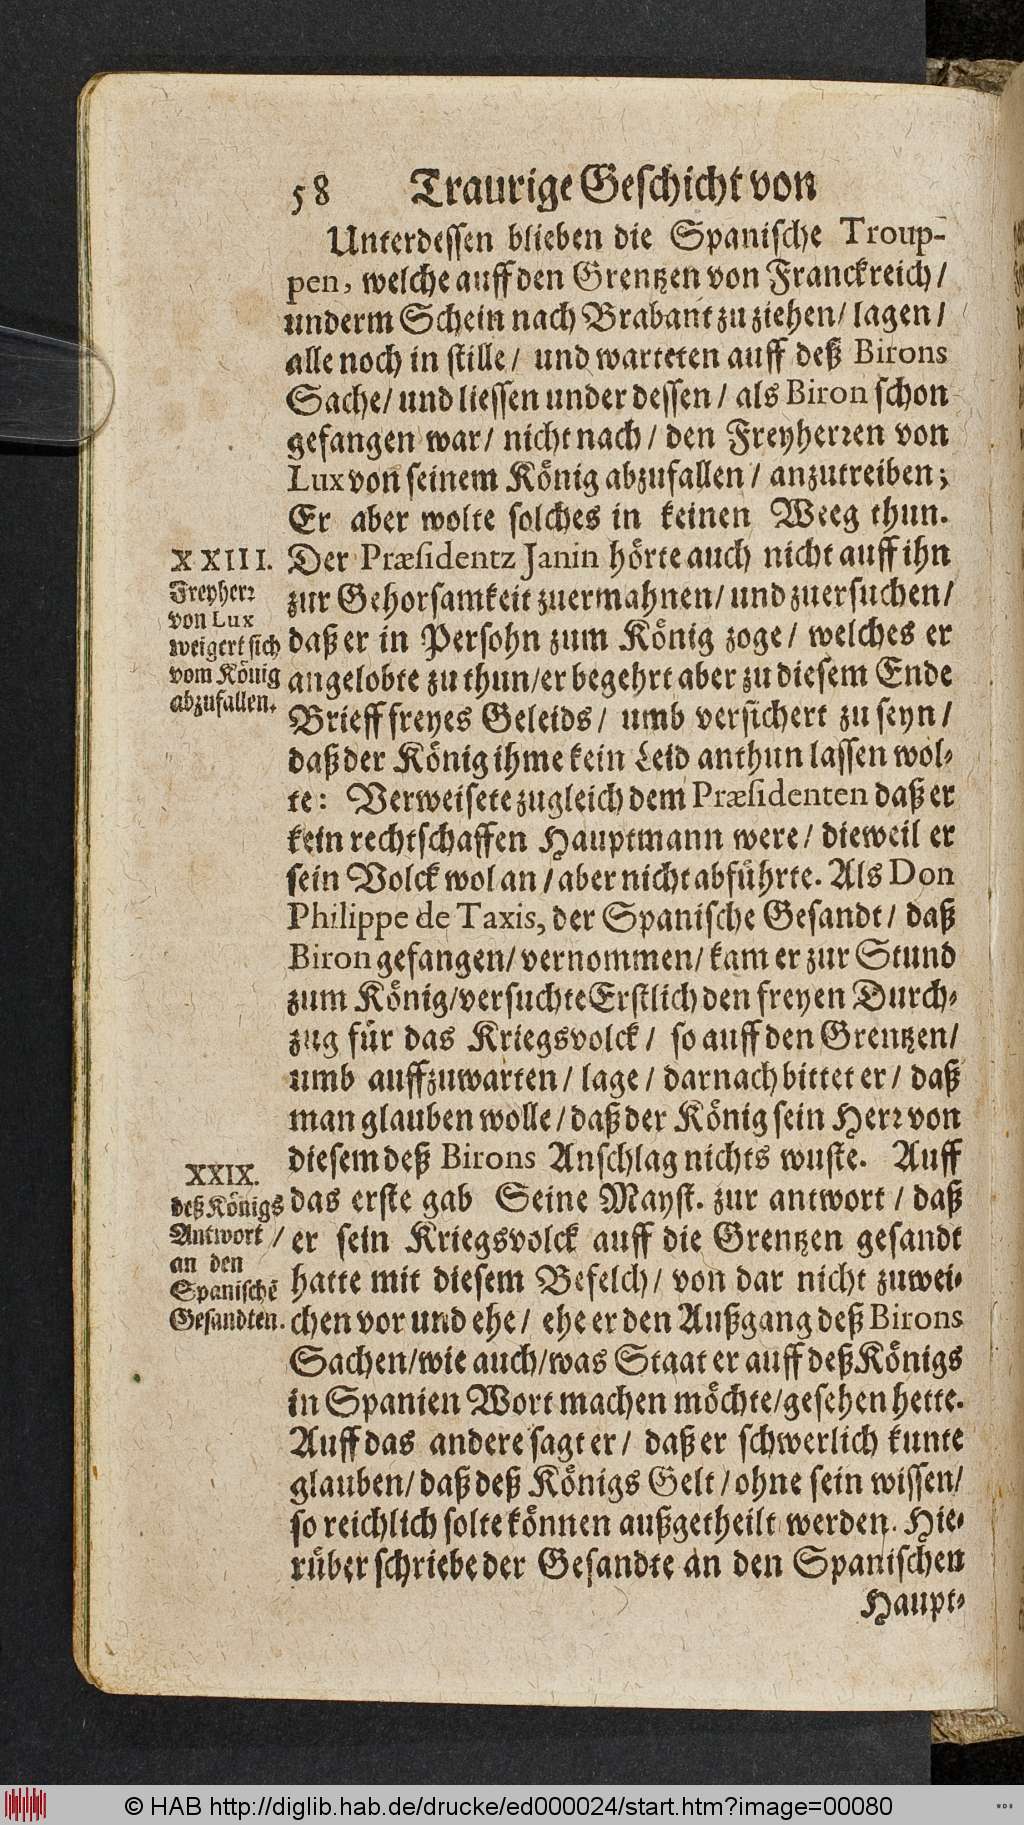 58 Traurige Geschicht von
Unterdessen blieben die Spanische Troup-
pen, welche auff den Grentzen von Franckreich /
underm Schein nach Brabant zu ziehen / lagen /
alle noch in stille / und warteten auff deß Birons
Sache / und liessen under dessen / als Biron schon
gefangen war / nicht nach / den Freyherren von
Lux von seinem König abzufallen / anzutreiben;
Er aber wolte solches in keinen Weeg thun.
XXIII.
Freyherr
von Lux
weigert sich
vom König
abzufallen.
Der Præsidentz Janin hörte auch nicht auff ihn
zur Gehorsamkeit zuermahnen / und zuersuchen /
daß er in Persohn zum König zoge / welches er
angelobte zu thun / er begehrt aber zu diesem Ende
Brieff freyes Geleids / umb versichert zu seyn /
daß der König ihme kein Leid anthun lassen wol-
te: Verweisete zugleich dem Præsidenten daß er
kein rechtschaffen Hauptmann were / dieweil er
sein Volck wol an / aber nicht abführte. Als Don
Philippe de Taxis, der Spanische Gesandt / daß
Biron gefangen / vernommen / kam er zur Stund
zum König / versuchte Erstlich den freyen Durch-
zug für das Kriegsvolck / so auff den Grentzen /
umb auffzuwarten / lage / darnach bittet er / daß
man glauben wolle / daß der König sein Herr von
diesem deß Birons Anschlag nichts wuste. Auff
XXIX.
deß Königs
Antwort /
an den
Spanischẽ
Gesandten.
das erste gab Seine Mayst. zur antwort / daß
er sein Kriegsvolck auff die Grentzen gesandt
hatte mit diesem Befelch / von dar nicht zuwei-
chen vor und ehe / ehe er den Außgang deß Birons
Sachen / wie auch / was Staat er auff deß Königs
in Spanien Wort machen möchte / gesehen hette.
Auff das andere sagt er / daß er schwerlich kunte
glauben / daß deß Königs Gelt / ohne sein wissen /
so reichlich solte können außgetheilt werden. Hie-
rüber schriebe der Gesandte an den Spanischen
Haupt-
© HAB http://diglib.hab.de/drucke/ed000024/start.htm?image=00080